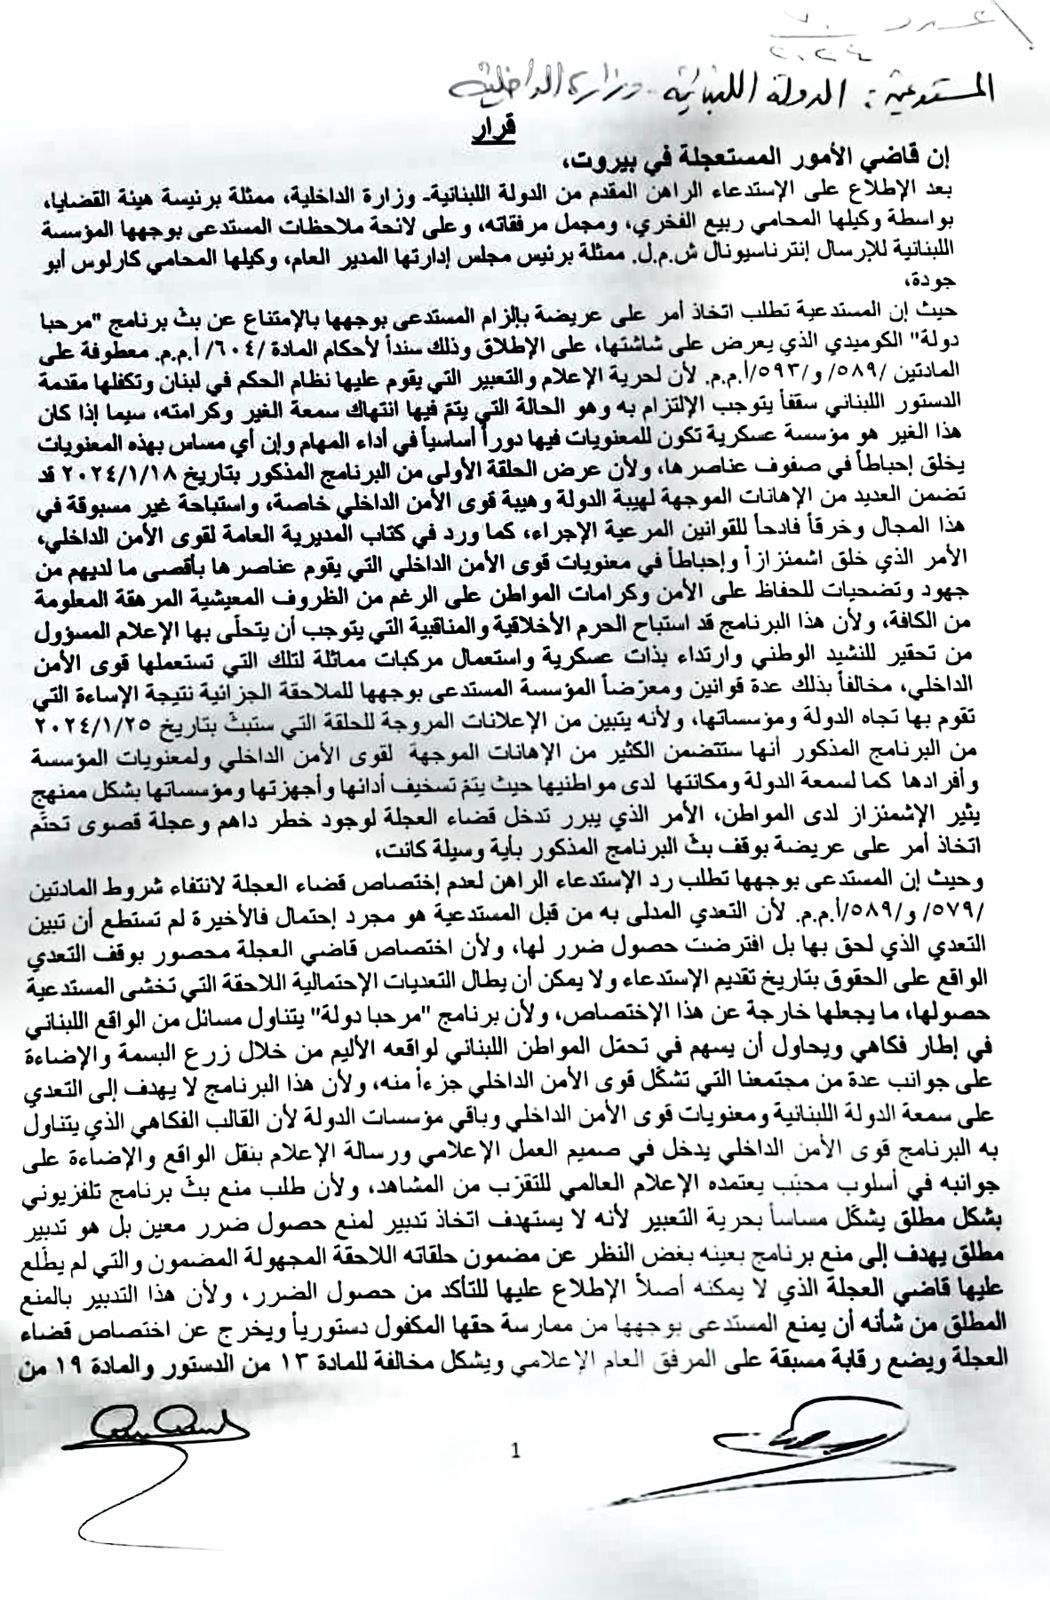 عدد ٧٠
٢٠٢٤
المستدعية: الدولة اللبنانية - وزارة الداخلية
قرار
إن قاضي الأمور المستعجلة في بيروت،
بعد الإطلاع على الإستدعاء الراهن المقدم من الدولة اللبنانية- وزارة الداخلية، ممثلة برئيسة هيئة القضايا،
بواسطة وكيلها المحامي ربيع الفخري، ومجمل مرفقاته، وعلى لائحة ملاحظات المستدعى بوجهها المؤسسة
اللبنانية للإرسال إنترناسيونال ش.م.ل. ممثلة برئيس مجلس إدارتها المدير العام، وكيلها المحامي كارلوس أبو
جودة،
حيث إن المستدعية تطلب اتخاذ أمر على عريضة بإلزام المستدعى بوجهها بالإمتناع عن بثّ برنامج "مرحبا
دولة" الكوميدي الذي يعرض على شاشتها، على الإطلاق وذلك سنداً لأحكام المادة /٦٠٤/ أ.م.م. معطوفة على
المادتين /٥٨٩/ و/٥٩٣/أ.م.م. لأن لحرية الإعلام والتعبير التي يقوم عليها نظام الحكم في لبنان وتكفلها مقدمة
الدستور اللبناني سقفاً يتوجب الإلتزام به وهو الحالة التي يتمّ فيها انتهاك سمعة الغير وكرامته، سيما إذا كان
هذا الغير هو مؤسسة عسكرية تكون للمعنويات فيها دوراً أساسياً في أداء المهام وإن أي مساس بهذه المعنويات
يخلق إحباطاً في صفوف عناصرها، ولأن عرض الحلقة الأولى من البرنامج المذكور بتاريخ ٢٠٢٤/١/١٨ قد
تضمن العديد من الإهانات الموجهة لهيبة الدولة وهيبة قوى الأمن الداخلي خاصة، واستباحة غير مسبوقة في
هذا المجال وخرقاً فادحاً للقوانين المرعية الإجراء، كما ورد في كتاب المديرية العامة لقوى الأمن الداخلي،
الأمر الذي خلق اشمئزازاً وإحباطاً في معنويات قوى الأمن الداخلي التي يقوم عناصرها بأقصى ما لديهم من
جهود وتضحيات للحفاظ على الأمن وكرامات المواطن على الرغم من الظروف المعيشية المرهقة المعلومة
من الكافة، ولأن هذا البرنامج قد استباح الحرم الأخلاقية والمناقبية التي يتوجب أن يتحلّى بها الإعلام المسؤول
من تحقير للنشيد الوطني وارتداء بذات عسكرية واستعمال مركبات مماثلة لتلك التي تستعملها قوى الأمن
الداخلي، مخالفاً بذلك عدة قوانين ومعرّضاً المؤسسة المستدعى بوجهها للملاحقة الجزائية نتيجة الإساءة التي
تقوم بها تجاه الدولة ومؤسساتها، ولأنه يتبين من الإعلانات المروجة للحلقة التي ستبثّ بتاريخ ٢٠٢٤/١/٢٥
من البرنامج المذكور أنها ستتضمن الكثير من الإهانات الموجهة لقوى الأمن الداخلي ولمعنويات المؤسسة
وأفرادها كما لسمعة الدولة ومكانتها لدى مواطنيها حيث يتمّ تسخيف أدائها وأجهزتها ومؤسساتها بشكل ممنهج
يثير الإشمئزاز لدى المواطن، الأمر الذي يبرر تدخل قضاء العجلة لوجود خطر داهم وعجلة قصوى تحتّم
اتخاذ أمر على عريضة بوقف بثّ البرنامج المذكور بأية وسيلة كانت،
وحيث إن المستدعى بوجهها تطلب رد الإستدعاء الراهن لعدم إختصاص قضاء العجلة لانتفاء شروط المادتين
/٥٧٩/ و/٥٨٩/أ.م.م. لأن التعدي المدلى به من قبل المستدعية هو مجرد إحتمال فالأخيرة لم تستطع أن تبين
التعدي الذي لحق بها بل افترضت حصول ضرر لها، ولأن اختصاص قاضي العجلة محصور بوقف التعدي
الواقع على الحقوق بتاريخ تقديم الإستدعاء ولا يمكن أن يطال التعديات الإحتمالية اللاحقة التي تخشى المستدعية
حصولها، ما يجعلها خارجة عن هذا الإختصاص، ولأن برنامج "مرحبا دولة" يتناول مسائل من الواقع اللبناني
في إطار فكاهي ويحاول أن يسهم في تحمّل المواطن اللبناني لواقعه الأليم من خلال زرع البسمة والإضاءة
على جوانب عدة من مجتمعنا التي تشكّل قوى الأمن الداخلي جزءاً منه، ولأن هذا البرنامج لا يهدف إلى التعدي
على سمعة الدولة اللبنانية ومعنويات قوى الأمن الداخلي وباقي مؤسسات الدولة لأن القالب الفكاهي الذي يتناول
به البرنامج قوى الأمن الداخلي يدخل في صميم العمل الإعلامي ورسالة الإعلام بنقل الواقع والإضاءة على
جوانبه في أسلوب محبّب يعتمده الإعلام العالمي للتقرّب من المشاهد، ولأن طلب منع بثّ برنامج تلفزيوني
بشكل مطلق يشكّل مساساً بحرية التعبير لأنه لا يستهدف اتخاذ تدبير لمنع حصول ضرر معين بل هو تدبير
مطلق يهدف إلى منع برنامج بعينه بغض النظر عن مضمون حلقاته اللاحقة المجهولة المضمون والتي لم يطّلع
عليها قاضي العجلة الذي لا يمكنه أصلاً الإطلاع عليها للتأكد من حصول الضرر، ولأن هذا التدبير بالمنع
المطلق من شأنه أن يمنع المستدعى بوجهها من ممارسة حقها المكفول دستورياً ويخرج عن اختصاص قضاء
العجلة ويضع رقابة مسبقة على المرفق العام الإعلامي ويشكل مخالفة للمادة ١٣ من الدستور والمادة ١٩ من
1